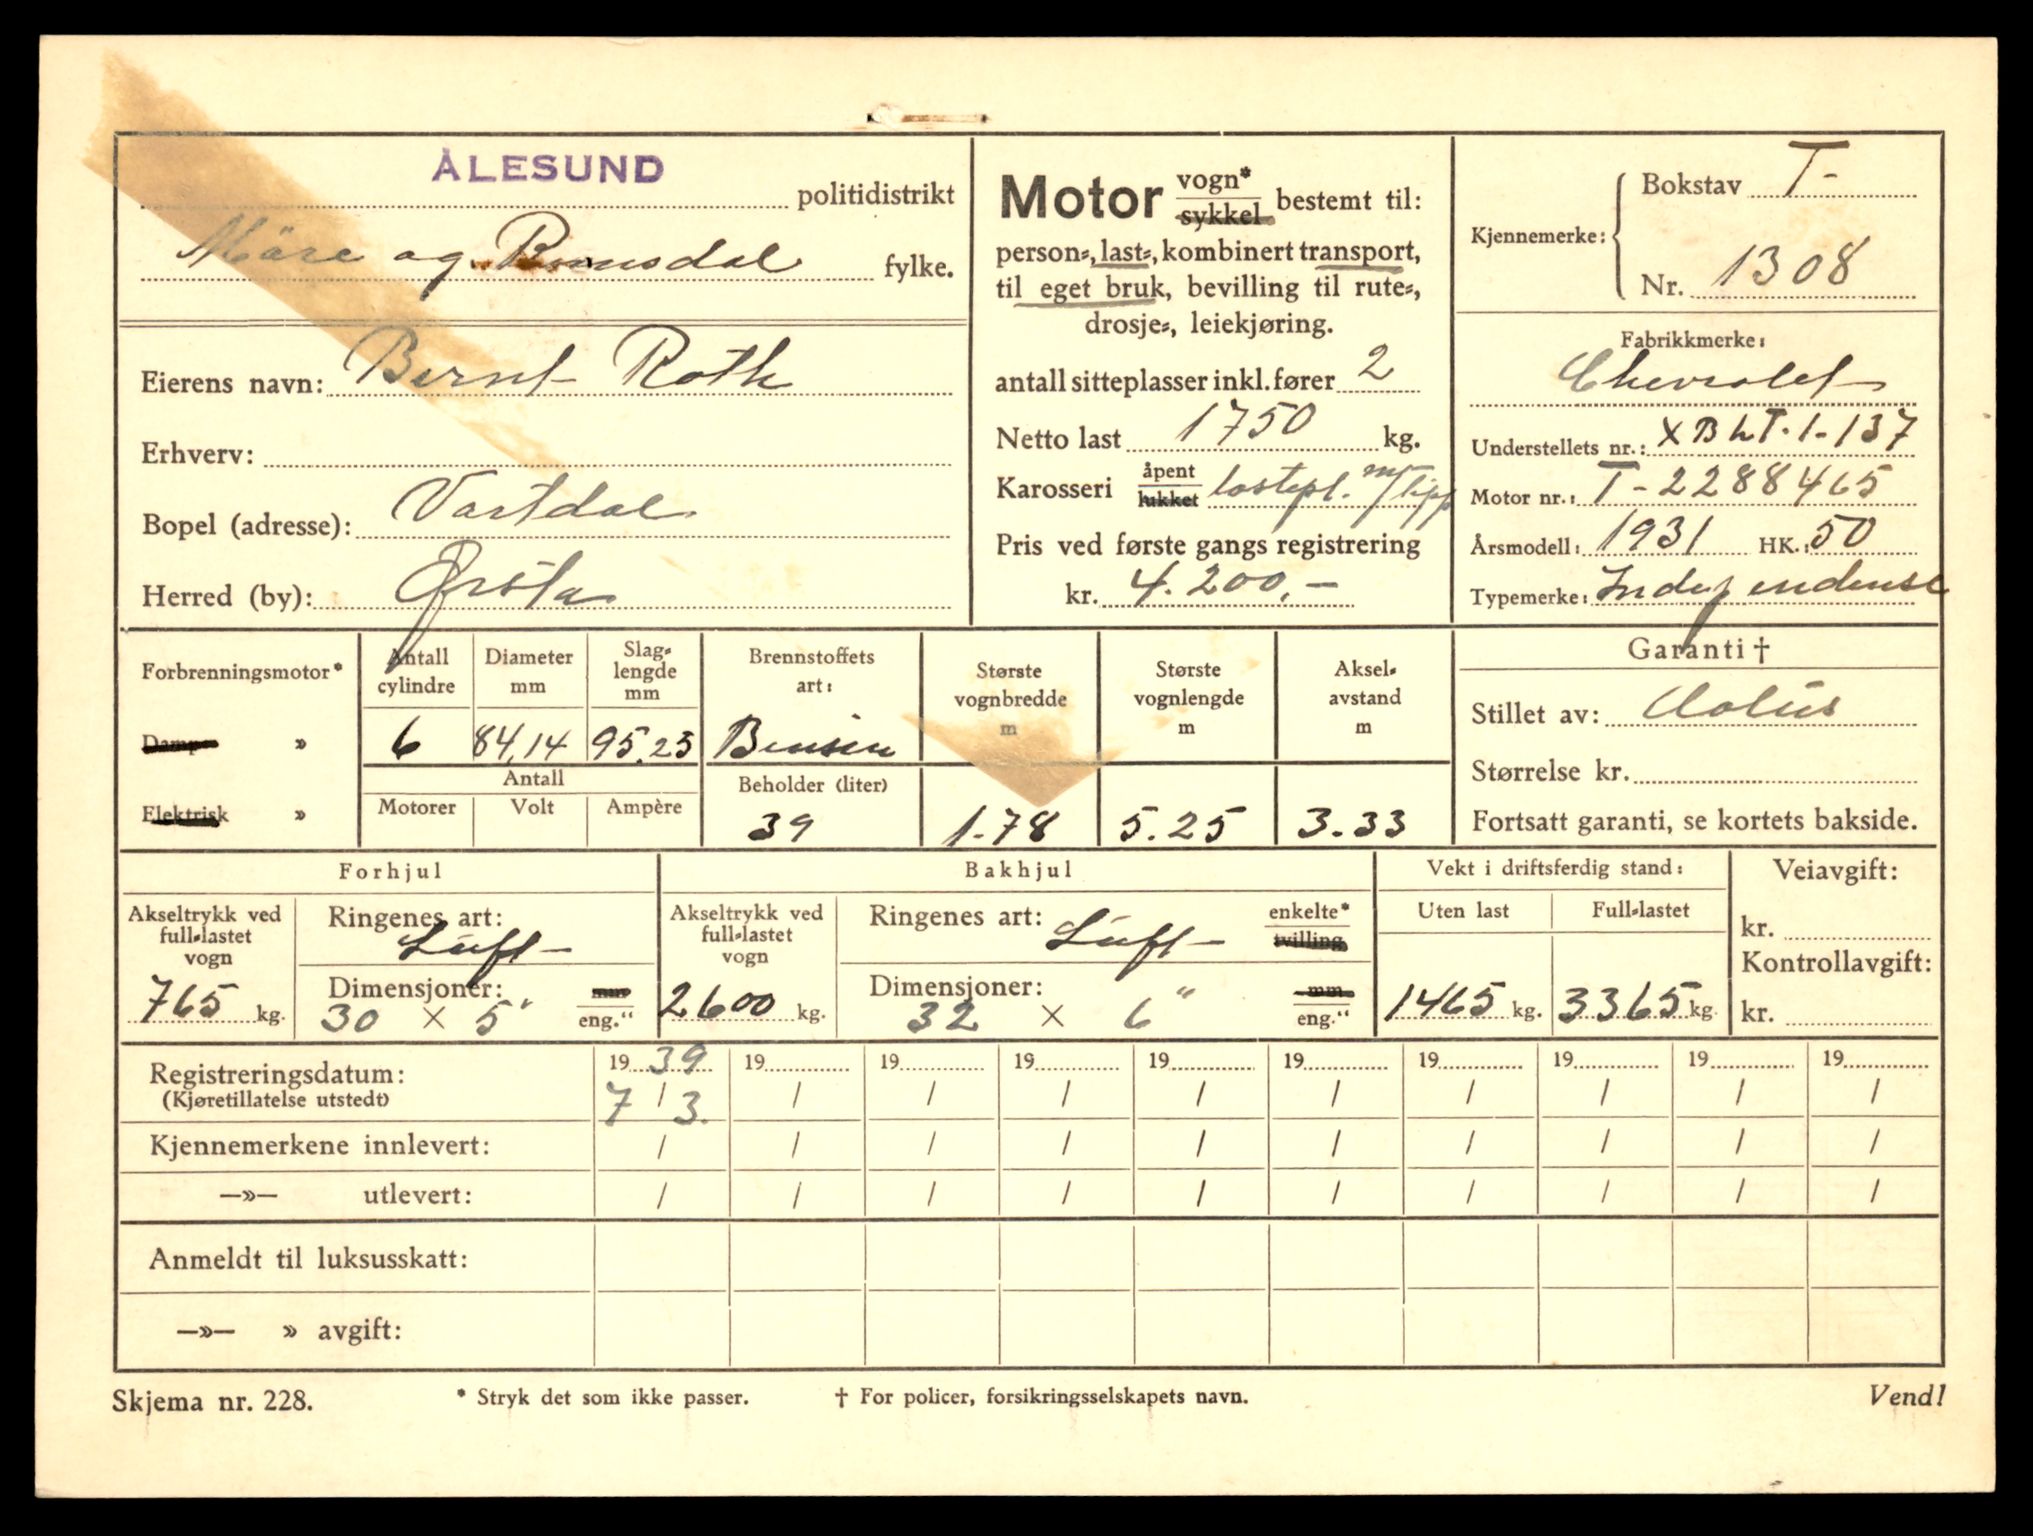 ÅLESUND politidistrikt
Möre og Romsdal fylke.
Eierens navn: Bernt Roth
Erhverv:
Bopel (adresse): Vartdal
Herred (by): Ørsta
Motor vogn* sykkel bestemt til:
person-, last-, kombinert transport,
til eget bruk, bevilling til rute-,
drosje-, leiekjøring.
antall sitteplasser inkl. fører 2
Netto last 1750 kg.
Karosseri åpent lukket lastepl. m/tipp
Pris ved første gangs registrering
kr. 4.200,-
Kjennemerke: Bokstav T-
Nr. 1308
Fabrikkmerke:
Chevrolet
Understellets nr.: XBLT-1-137
Motor nr.: T-2288465
Årsmodell: 1931 HK.: 50
Typemerke: Independense
Forbrenningsmotor*
Damp »
Elektrisk »
Antall cylindre 6
Diameter mm 84,14
Slaglengde mm 95.25
Antall
Motorer Volt Ampère
Brennstoffets art: Bensin
Beholder (liter) 39
Største vognbredde m 1.78
Største vognlengde m 5.25
Akselavstand m 3.33
Garanti †
Stillet av: Æolus
Størrelse kr.
Fortsatt garanti, se kortets bakside.
Forhjul
Akseltrykk ved full-lastet vogn 765 kg.
Ringenes art: Luft
Dimensjoner: 30 × 5" mm eng."
Bakhjul
Akseltrykk ved full-lastet vogn 2600 kg.
Ringenes art: Luft enkelte* tvilling
Dimensjoner: 32 × 6" mm eng."
Vekt i driftsferdig stand:
Uten last 1465 kg.
Full-lastet 3365 kg.
Veiavgift:
kr.
Kontrollavgift:
kr.
Registreringsdatum: 19 39 19 19 19 19 19 19 19 19 19
(Kjøretillatelse utstedt) 7 / 3. / / / / / / / / /
Kjennemerkene innlevert: / / / / / / / / / /
—»— utlevert: / / / / / / / / / /
Anmeldt til luksusskatt:
—»— » avgift:
Skjema nr. 228. * Stryk det som ikke passer. † For policer, forsikringsselskapets navn. Vend!